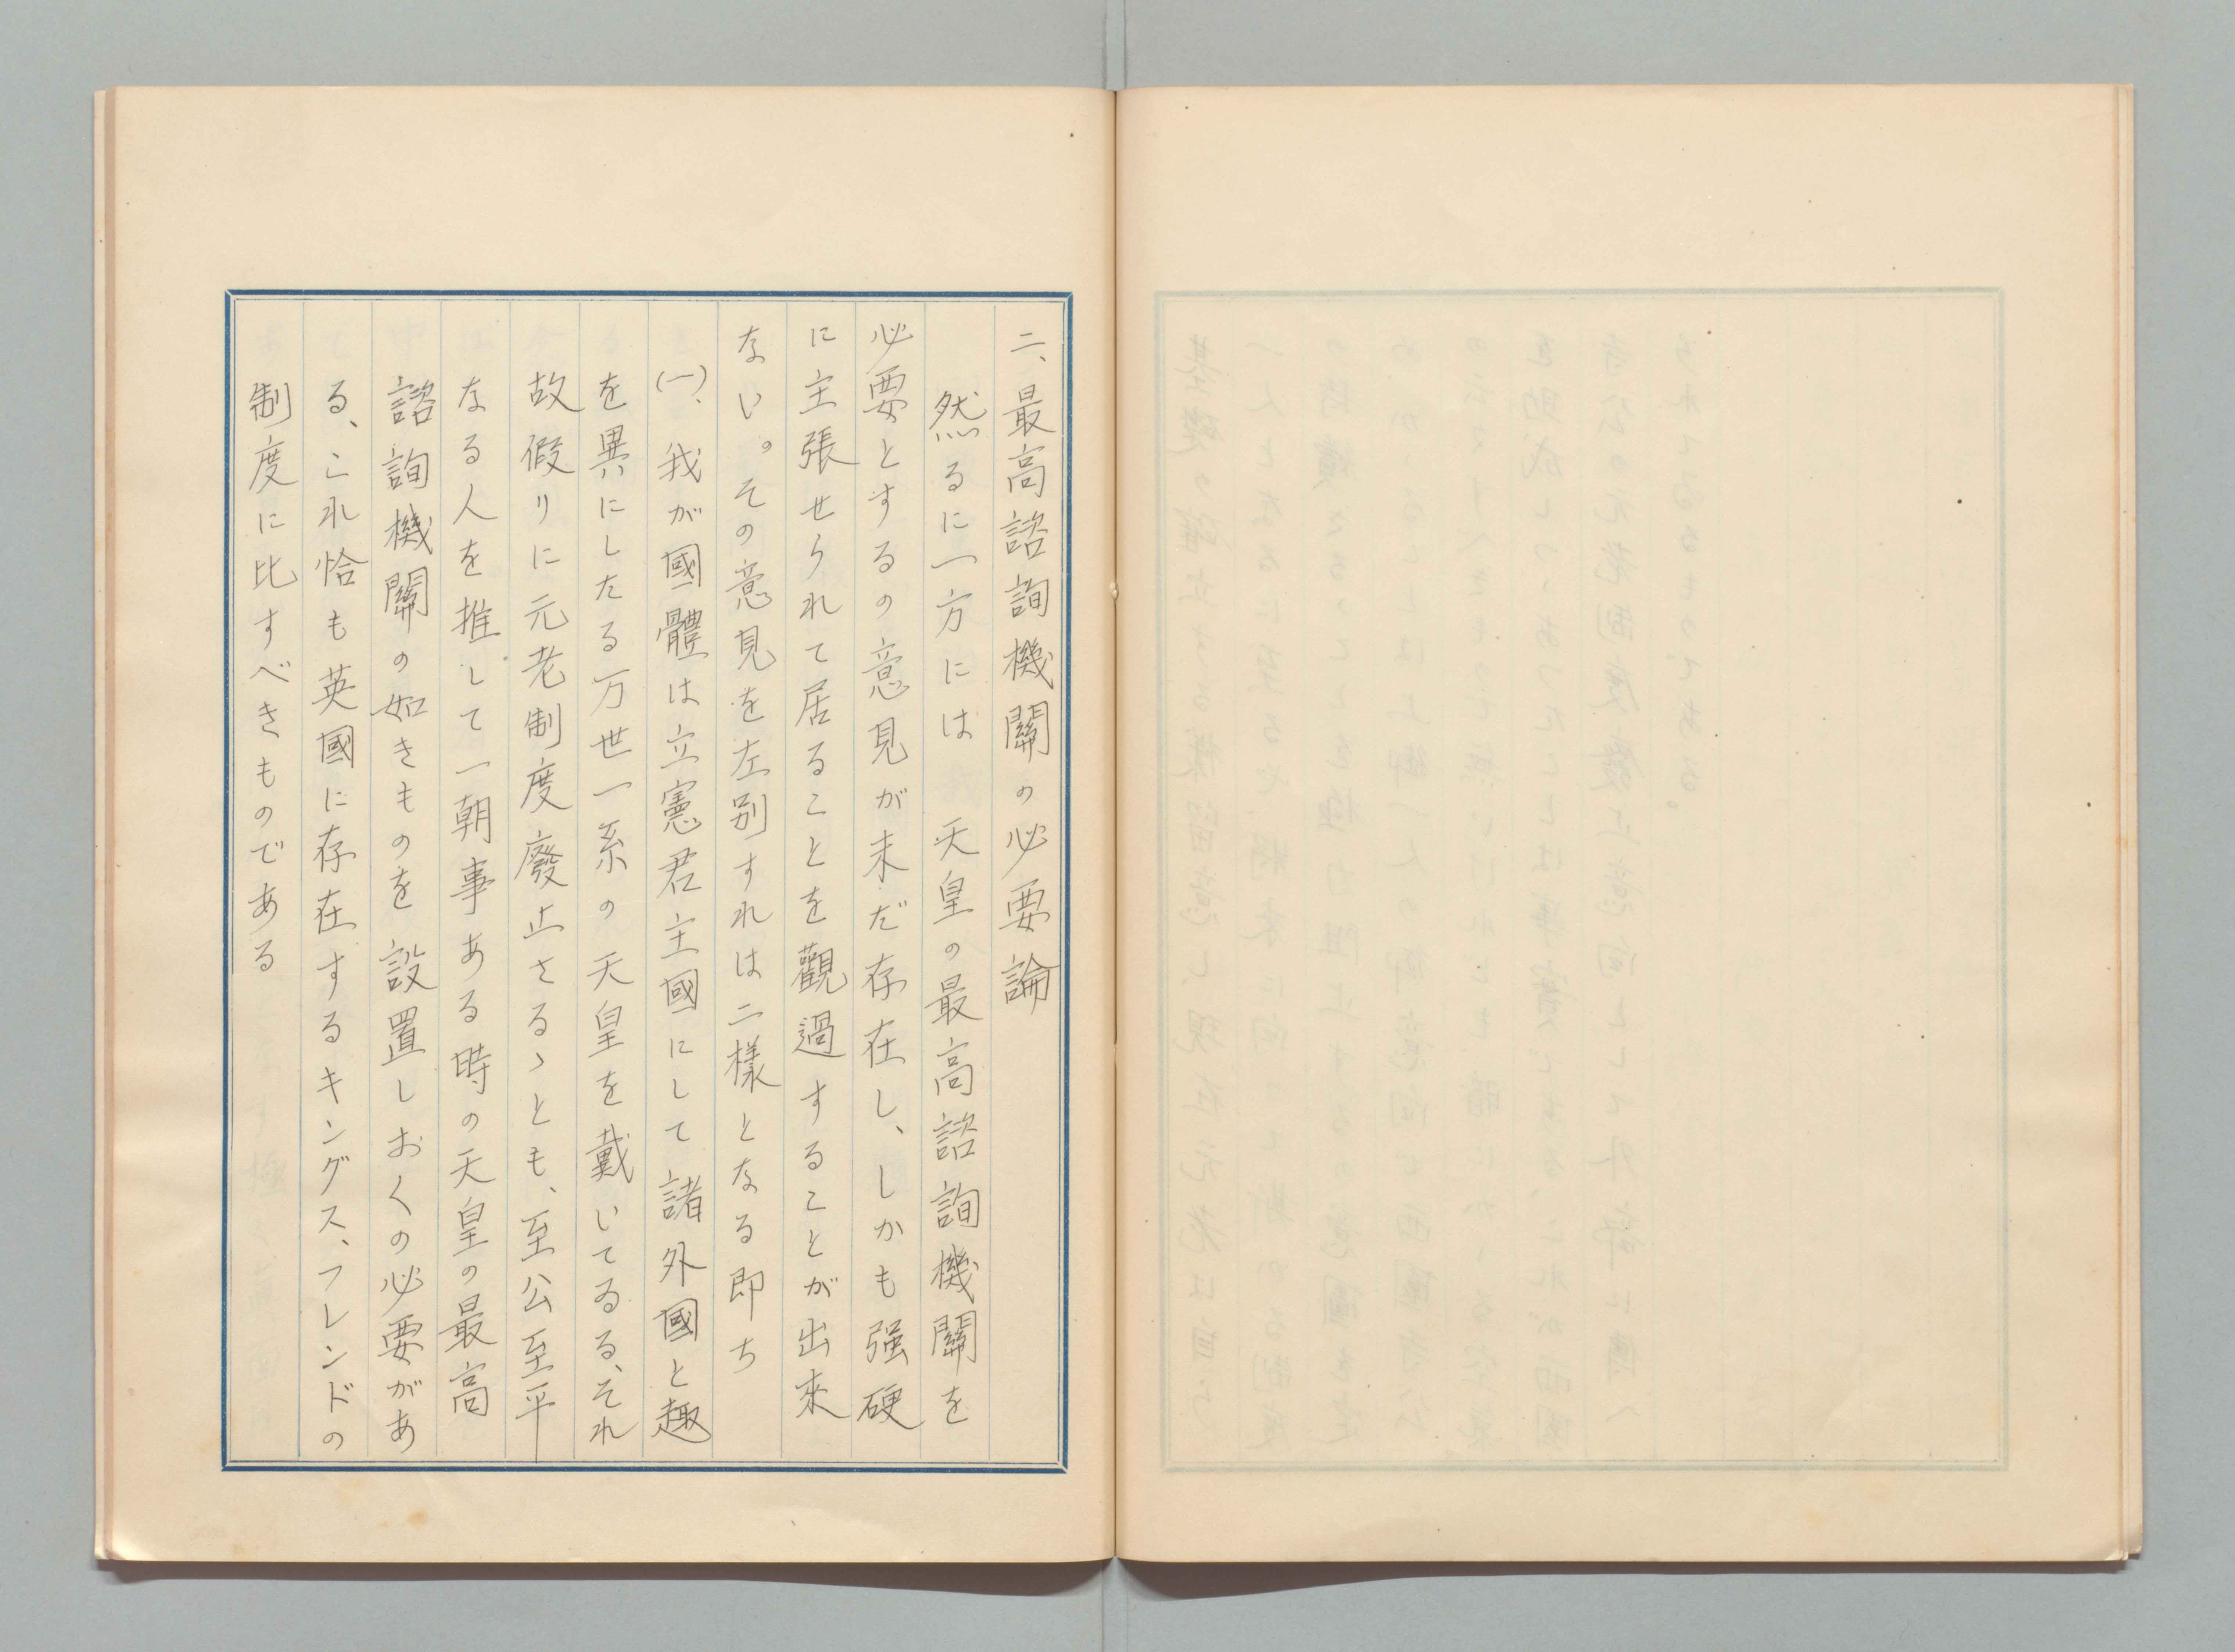 二、最高諮詢機關の必要論
然るに一方には　天皇の最高諮詢機關を
必要とするの意見が未だ存在し、しかも强硬
に主張せられて居ることを觀過することが出來
ない。その意見を左別すれは二樣となる即ち
(一)、我が國體は立憲君主國にして諸外國と趣
を異にしたる万世一系の天皇を戴いてゐる、それ
故假りに元老制度廢止さるゝとも、至公至平
なる人を推して一朝事ある時の天皇の最高
諮詢機關の如きものを設置しおくの必要があ
る、これ恰も英國に存在するキングス、フレンドの
制度に比すべきものである